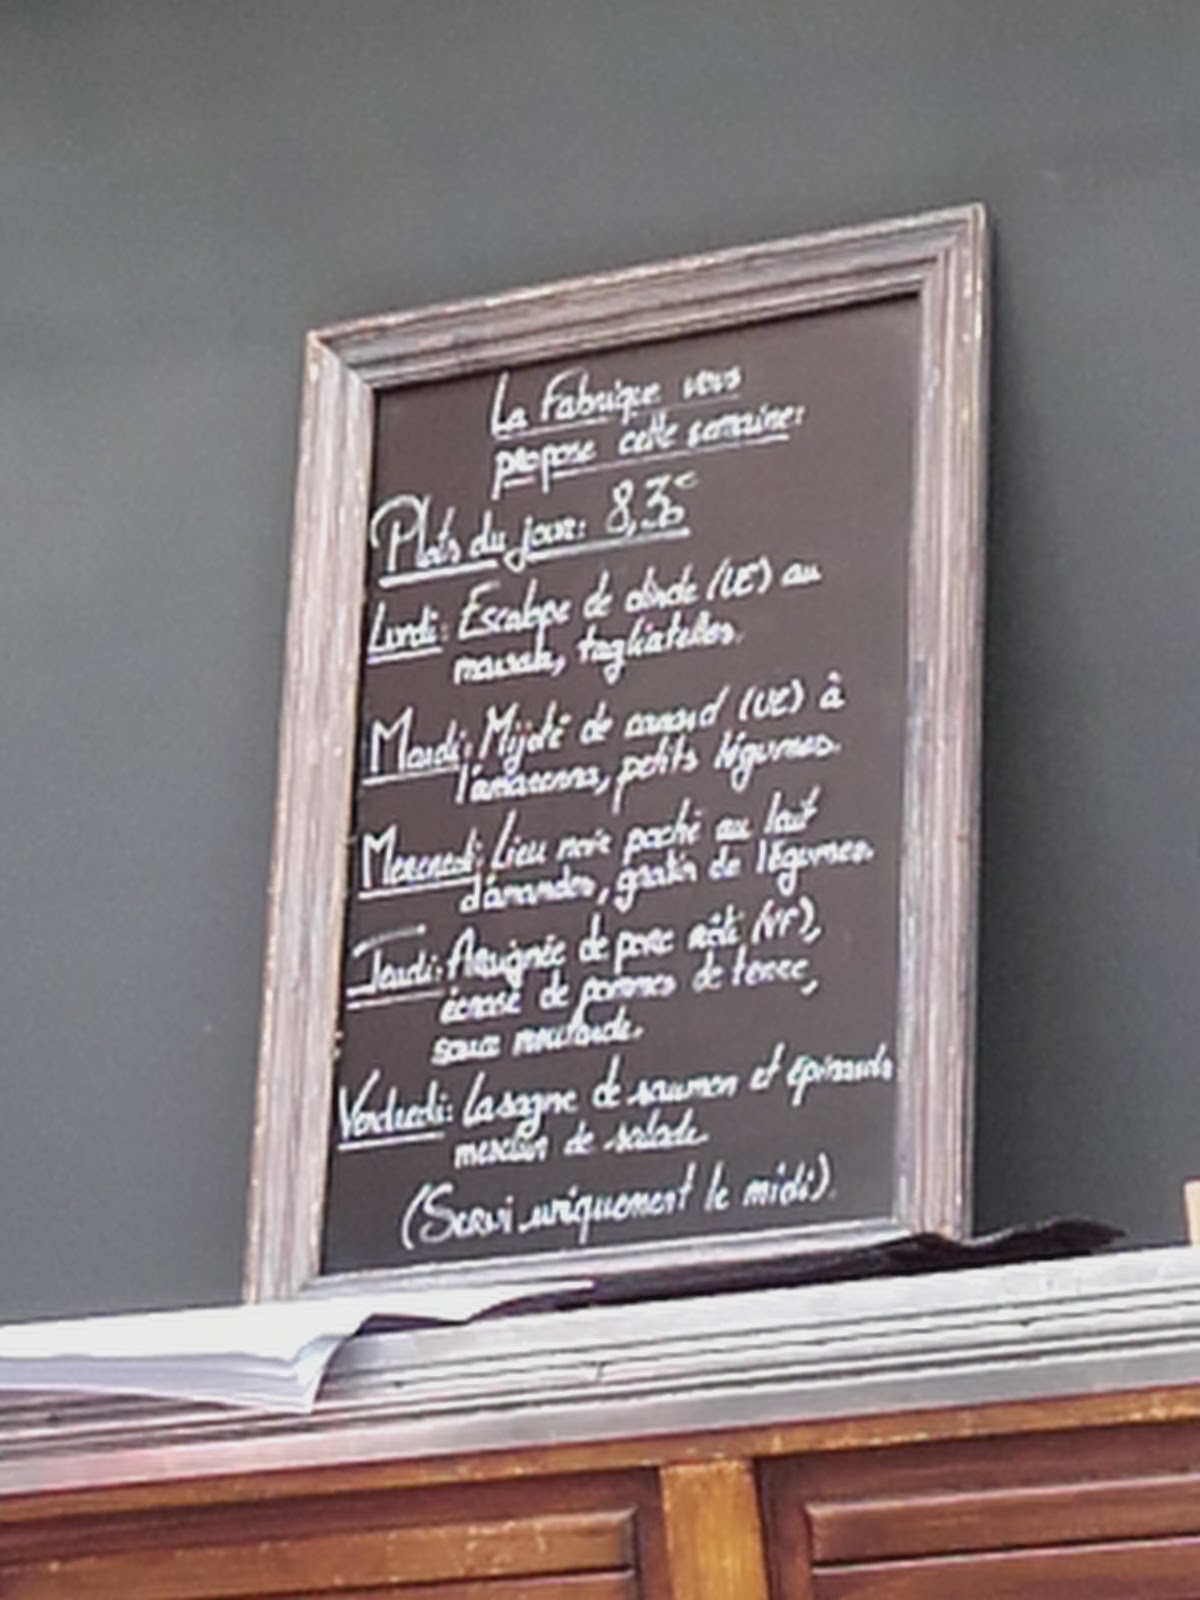 La Fabrique vous
propose cette semaine:
Plats du jour: 8,30€
Lundi: Escalope de dinde (UE) au
masala, tagliatelles.
Mardi: Mijoté de canard (UE) à
l'amarena, petits légumes.
Mercredi: Lieu noir poché au lait
d'amandes, gratin de légumes.
Jeudi: Araignée de porc rôti (VF),
écrasé de pommes de terre,
sauce moutarde.
Vendredi: Lasagne de saumon et épinards
mesclun de salade.
(Servi uniquement le midi).